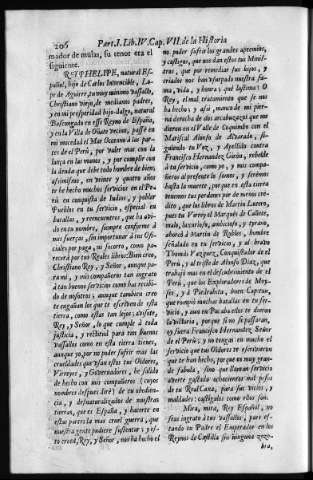 206 Part.I.Lib.IV.Cap.VII.de la Historia
mador de mulas, su tenor era el
siguiente.
REY PHELIPE, natural Es-
pañol, hijo de Carlos Invencible, Lo-
pe de Aguirre, tu muy minimo vassallo,
Christiano viejo, de medianos padres,
y en mi prosperidad hijodalgo, natural
Bascongado en esse Reyno de España,
y en la Villa de Oñate vecino, passè en
mi mocedad el Mar Occeano à las par-
tes de el Perú, por valer mas con la
lança en las manos, y por cumplir con
la deuda que debe todo hombre de bien;
assimismo, en veinte y quatro años
te he hecho muchos servicios en el Perú
en conquista de Indios, y poblar
Pueblos en tu servicio, especial en
batallas, y reencuentros, que ha avi-
do en tu nombre, siempre conforme à
mis fuerças, sin importunar à tus Ofi-
ciales por paga, ni socorro, como pare-
cerà por tus Reales libros: Bien creo,
Christiano Rey, y Señor, aunque pa-
ra mi, y mis compañeros tan ingrato
à tan buenos servicios como has recebi-
do de nosotros; aunque tambien creo
te engañan los que te escriven de esta
tierra, como estas tan lejos:
Rey, y Señor, lo que cumple à toda
justicia, y rectitud para tan buenos
vassallos como en esta tierra tienes,
aunque yo, por no poder sufrir mas las
crueldades que usan estos tus Oidores,
Virreyes, y Governadores, he salido
de hecho con mis compañeros (cuyos
nombres despues dirè) de tu obedien-
cia, y desnaturalizados de nuestras
tierras, que es España, y hacerte en
estas partes la mas cruel guerra, que
nuestra gente pudiere sustentar; y es-
to creas, Rey, y Señor, nos ha hecho el
no poder sufrir los grandes apremios,
y castigos, que nos dan estos tus Minis-
tros, que por remediar sus hijos, y
criados nos han usurpado nuestra fa-
ma, vida, y honra; què lastima! O
Rey, el mal tratamiento que se nos
ha hecho; y assi, manco de mi pie-
rna derecha de dos arcabuzazos que me
dieron en el Valle de Coquimbo con el
Mariscal Alonso de Alvarado, si-
guiendo tu Voz, y Apellido contra
Francisco Hernandez Giron, rebelde
à tu servicio, como yo, y mis compa-
ñeros al presente lo somos, y serèmos
hasta la muerte, por que en esta tierra
tenemos tus perdones por de menos cre-
dito, que los libros de Martin Lutero,
pues tu Virrey el Marquès de Cañete,
malo, luxurioso, ambicioso, y tyrano,
ahorcò à Martin de Robles, hombre
señalado en tu servicio; y al bravo
Thomàs Vazquez, Conquistador de el
Perú, y al triste de Alonso Diaz, que
trabajò mas en el descubrimiento de el
Perú, que los Exploradores de Moy-
sès, y à Piedrahita, buen Capitan,
que rompiò muchas batallas en tu ser-
vicio, y aun en Pucarà ellos te dieron
la victoria, porque si no se passaran,
oy fuera Francisco Hernandez Señor
de el Perú; y no tengas en mucho el
servicio que tus Oidores te escriviere
que te han hecho, porque es muy gran-
de fabula, sino que llaman servicio
averte gastado ochocientos mil pesos
de tu Real Caxa, para sus vicios, y
maldades: castigalos como ellos son.
Mira, mira, Rey Español, no
seas ingrato à tus vassallos, pues es-
tando tu Padre el Emperador en los
Reynos de Castilla sin ninguna zozo-
bra,